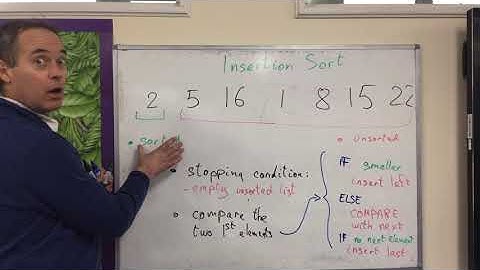 Insertion Sort
2 5 16 1 8 15 22
• sort
• unsorted
• stopping condition:
- empty unsorted list
• compare the
two 1st elements
IF smaller
insert 1st
ELSE
COMPARE
with next
IF no next element
insert last